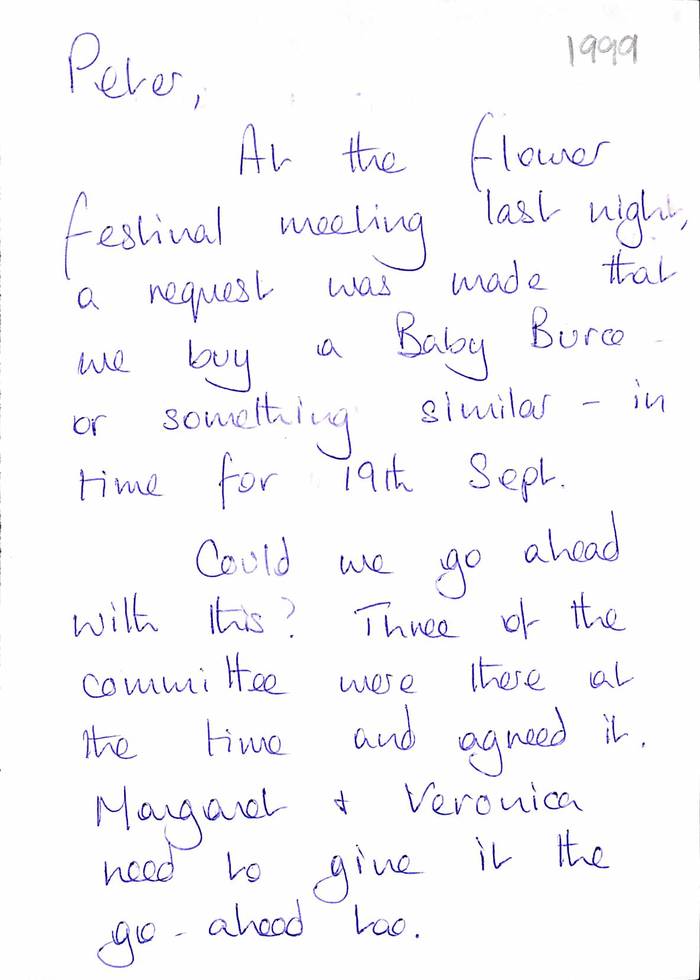 1999
Peter,
At the flower
festival meeting last night,
a request was made that
we buy a Baby Burco -
or something similar - in
time for 19th Sept.
Could we go ahead
with this? Three of the
committee were there at
the time and agreed it.
Margaret + Veronica
need to give it the
go-ahead too.